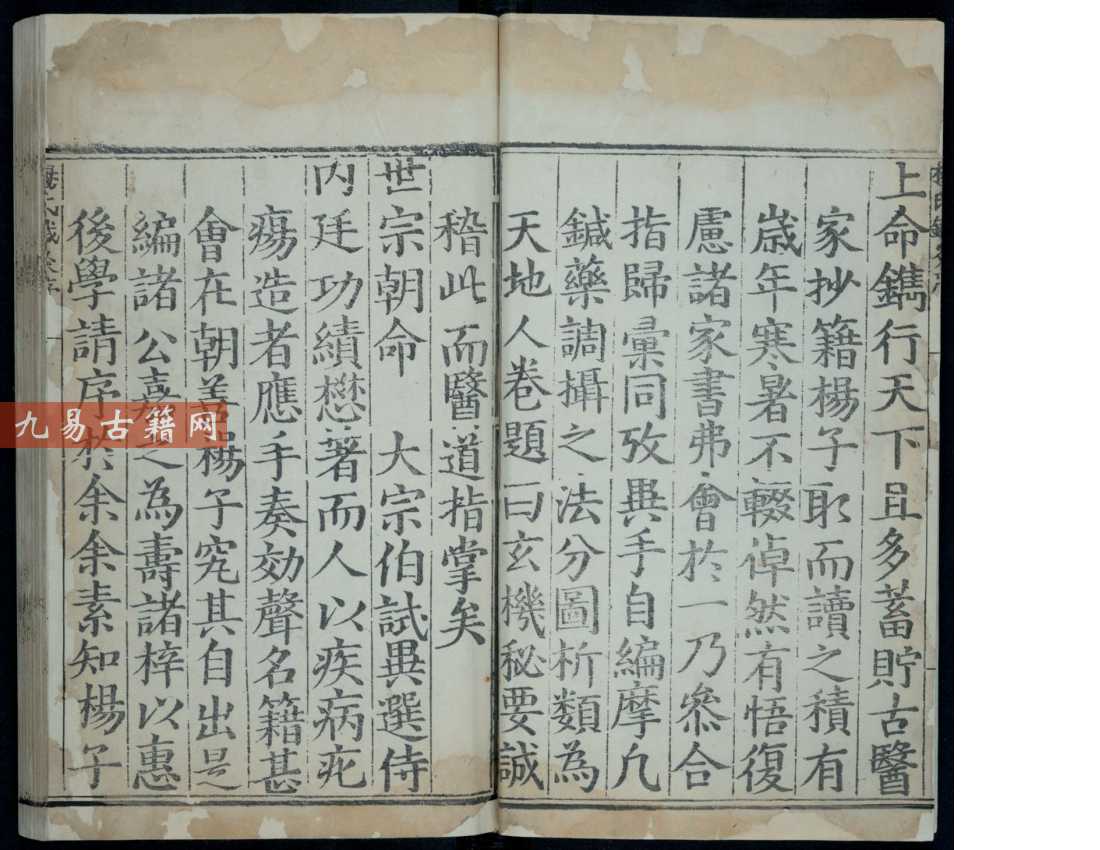 上命鐫行天下且多蓄貯古醫
家抄籍楊子取而讀之積有
歲年寒暑不輟倬然有悟復
慮諸家書弗會於一乃叅合
指歸彚同攷異手自編摩凢
鍼藥調攝之法分圖析類為
天地人卷題曰玄機秘要誠
稽此而醫道指掌矣
世宗朝命 大宗伯試異選侍
內廷功績懋著而人以疾病疕
瘍造者應手奏効聲名籍甚
會在朝善楊子究其自出是
編諸公嘉之為壽諸梓以惠
後學請序於余余素知楊子
九易古籍网